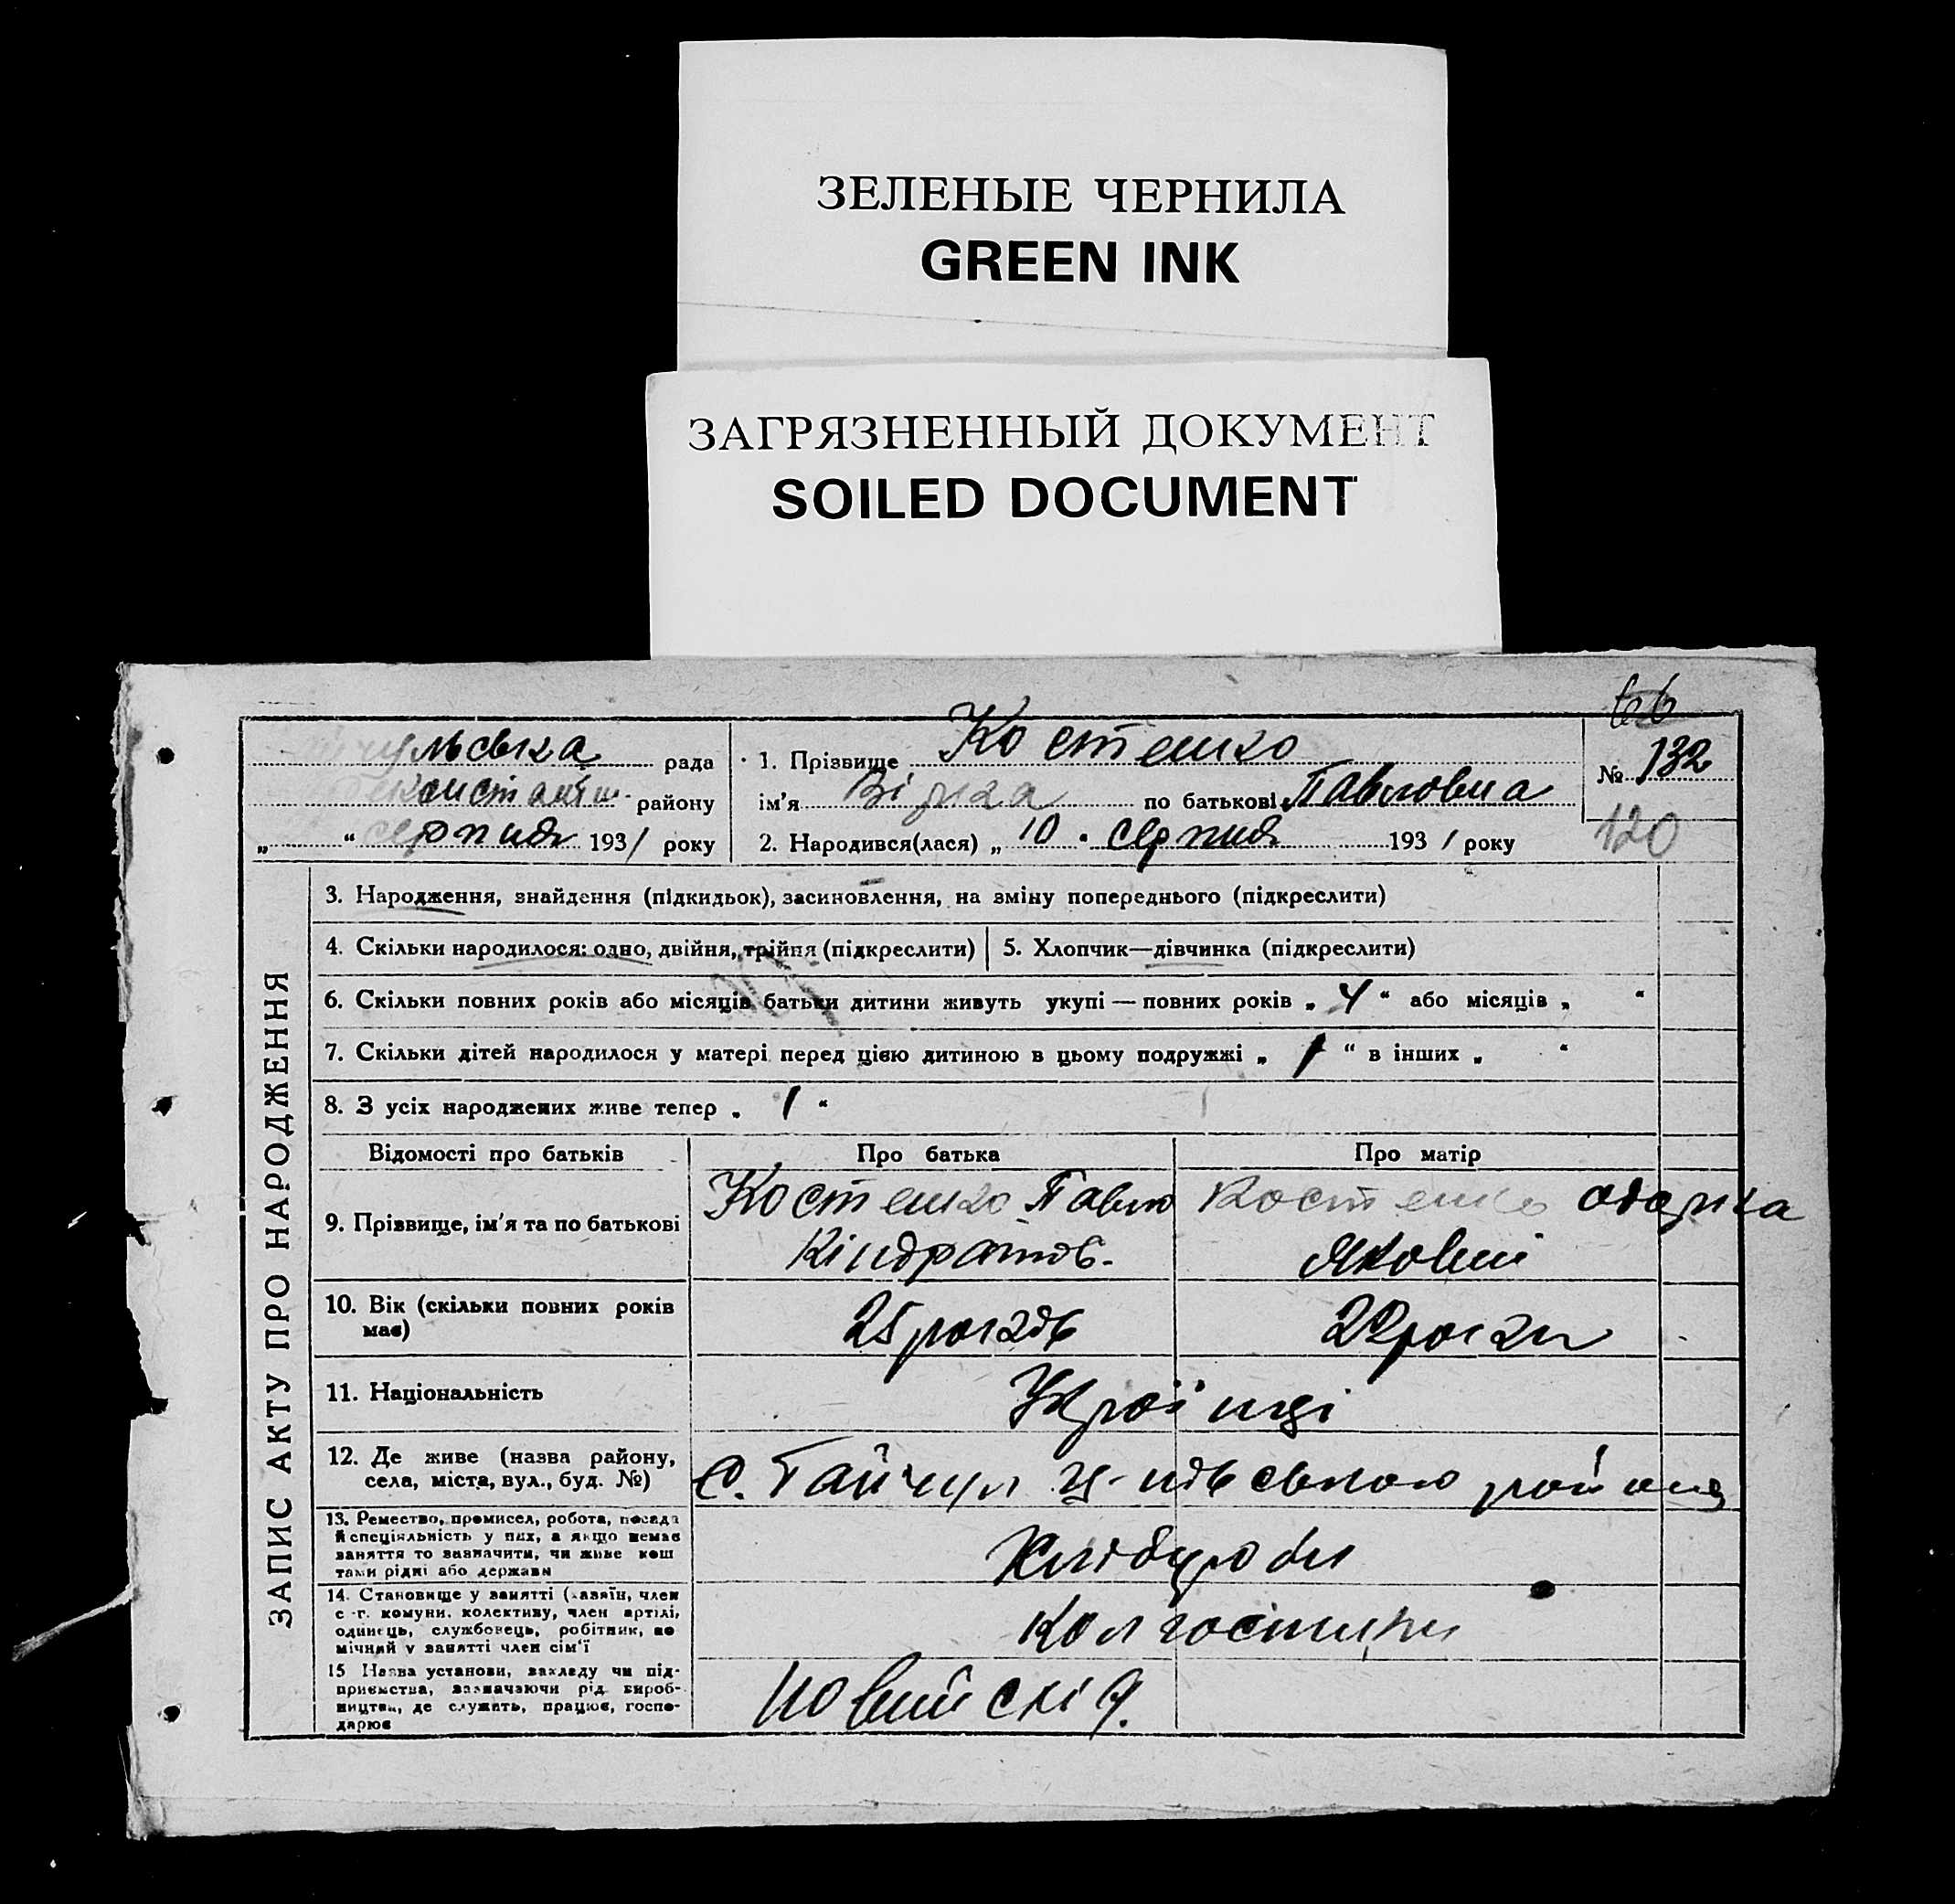 ЗЕЛЕНЫЕ ЧЕРНИЛА
GREEN INK
ЗАГРЯЗНЕННЫЙ ДОКУМЕНТ
SOILED DOCUMENT
чульська рада
констант. району
„ “ серпня 1931 року
1. Прізвище Костенко
ім'я Вірка по батькові Павловна
2. Народився(лася) „ 10 “ серпня 1931 року
№ 132
120
ЗАПИС АКТУ ПРО НАРОДЖЕННЯ
3. Народження, знайдення (підкидьок), засиновлення, на зміну попереднього (підкреслити)
4. Скільки народилося: одно, двійня, трійня (підкреслити) 5. Хлопчик—дівчинка (підкреслити)
6. Скільки повних років або місяців батьки дитини живуть укупі — повних років „ 4 “ або місяців „ “
7. Скільки дітей народилося у матері перед цією дитиною в цьому подружжі „ 1 “ в інших „ “
8. З усіх народжених живе тепер „ 1 “
Відомості про батьків Про батька Про матір
9. Прізвище, ім'я та по батькові
Костенко Павло
Кіндратов.
Костенко Одарка
Яковні
10. Вік (скільки повних років
має)
25 років 22 роки
11. Національність Украінці
12. Де живе (назва району,
села, міста, вул., буд. №)
С. Гайчул район
13. Ремество, промисел, робота, посада
й спеціяльність у них, а якщо немає
заняття то зазначити, чи живе кош
тами рідні або держави
Хлібороби
14. Становище у занятті (хазяїн, член
с.-г. комуни, колективу, член артілі,
одинець, службовець, робітник, по
мічний у занятті член сім'ї
Колгоспники
15 Назва установи, закладу чи під-
приємства, зазначаючи рід вироб-
ництва, де служить, працює, госпо-
дарює
Новий схід.